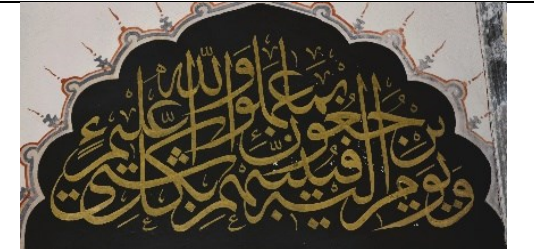 وَيَوْمَ يُرْجَعُونَ إِلَيْهِ فَيُنَبِّئُهُمْ بِمَا عَمِلُوا وَاللَّهُ بِكُلِّ شَيْءٍ عَلِيمٌ